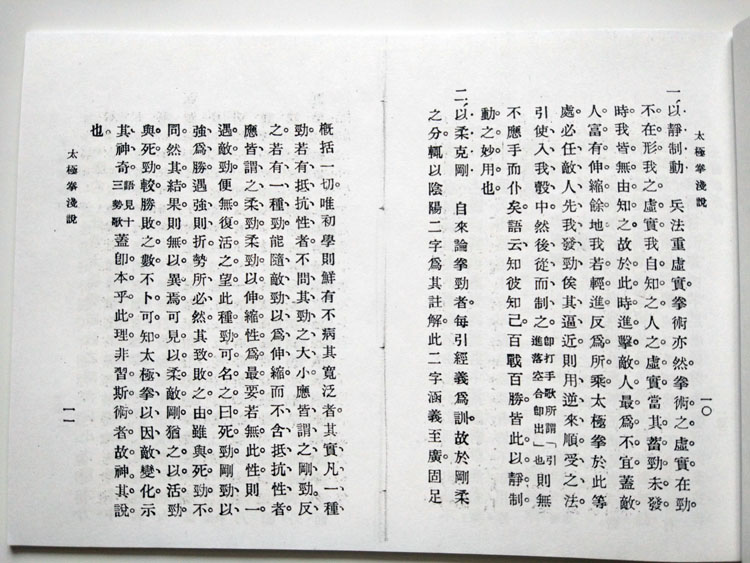 太極拳淺說
一〇
一、以靜制動　兵法重虛實。拳術亦然。拳術之虛實在勁。
不在形。我之虛實。我自知之。人之虛實。當其蓄勁未發
時。我皆無由知之。故於此時進擊敵人。最爲不宜。蓋敵
人富有伸縮餘地。我若輕進。反爲所乘。太極拳於此等
處。必任敵人先我發勁。俟其逼近。則用逆來順受之法。
引使入我彀中。然後從而制之。卽打手歌所謂「引進落空合卽出」也則無
不應手而仆矣。語云、知彼知己。百戰百勝。皆此以靜制
動之妙用也。
二、以柔克剛　自來論拳勁者。每引經義爲訓。故於剛柔
之分。輒以陰陽二字爲其註解。此二字涵義至廣。固足
概括一切。唯初學則鮮有不病其寬泛者。其實凡一種
勁、若有抵抗性者、不問其勁之大小、應皆謂之剛勁。反
之、若有一種勁、能隨敵勁以爲伸縮、而不含抵抗性者、
應皆謂之柔勁。柔勁以伸縮性。爲最要。若無此性。則一
遇敵勁。便無復活之望。此種勁可名之曰死勁。剛勁以
強爲勝。遇強則折。勢所必然。其致敗之由。雖與死勁不
同。然其結果則無以異焉。可見以柔敵剛。猶之以活勁
與死勁較。勝敗之數。不卜可知。太極拳以因敵變化示
其神奇。語見十三勢歌蓋卽本乎此理。非習斯術者。故神其說
也。
太極拳淺說
一一